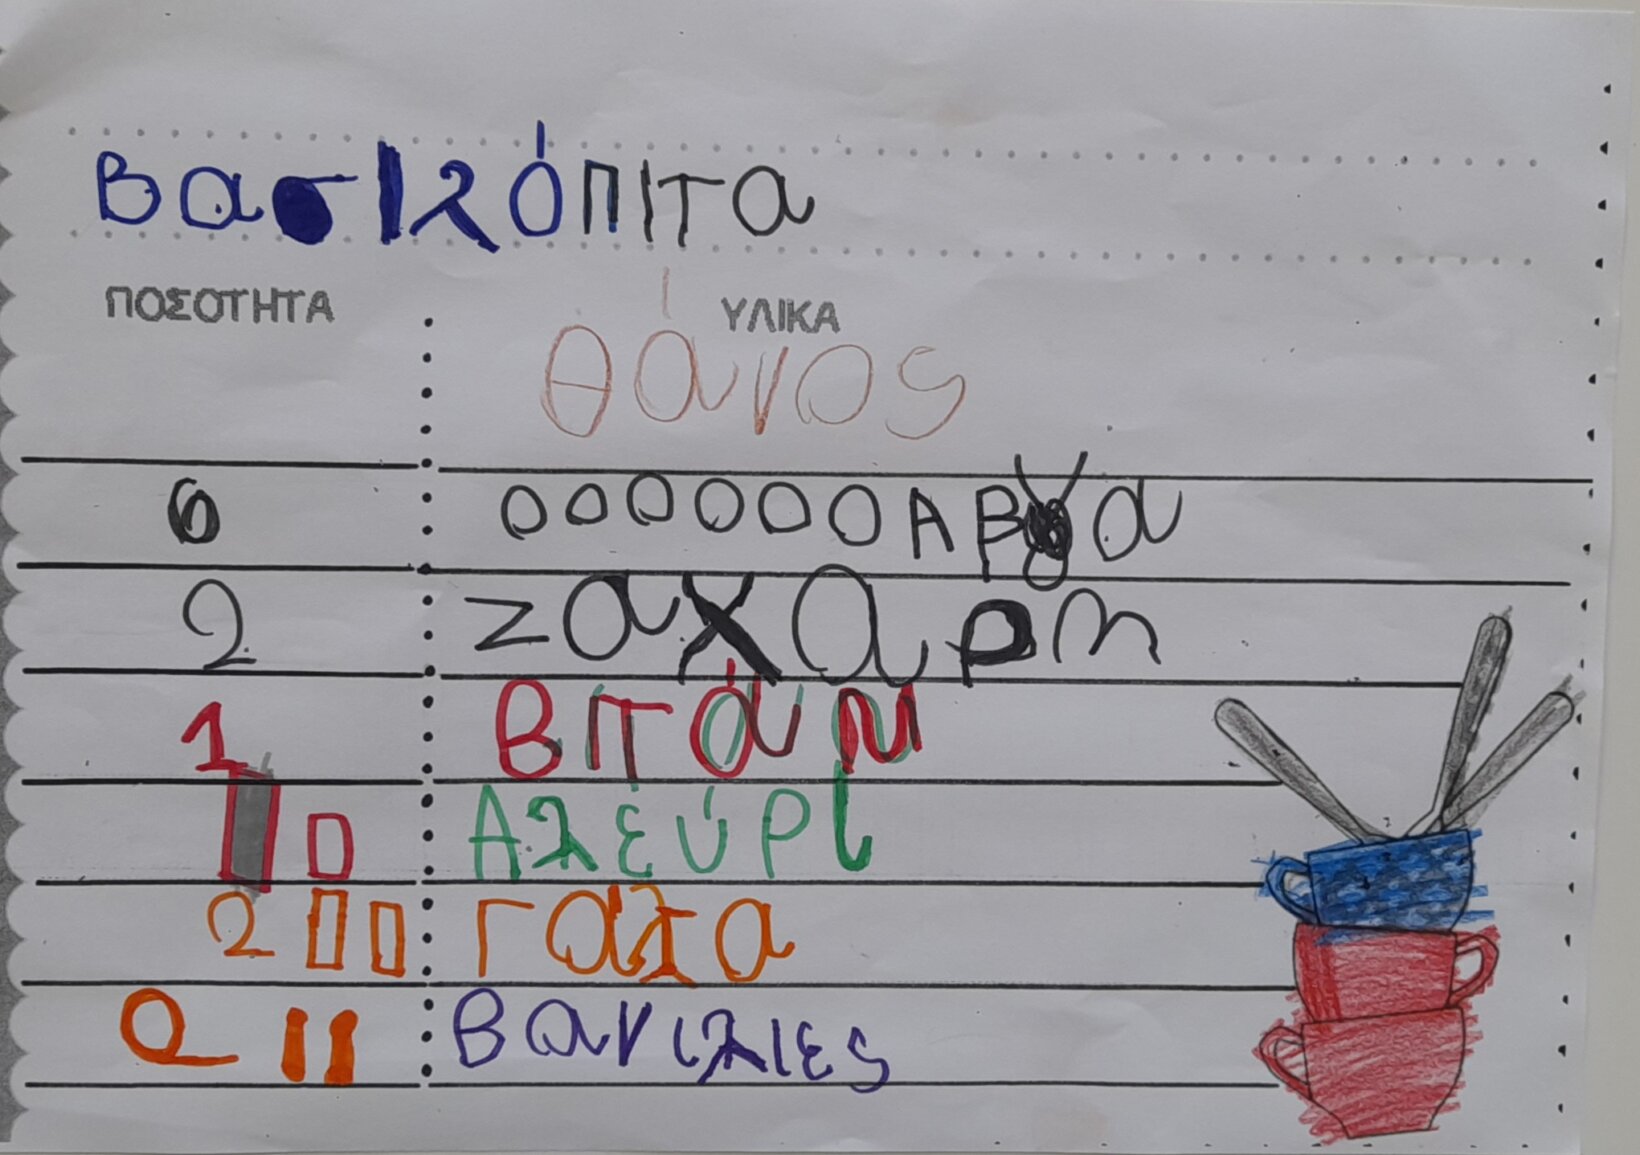 Βασιλόπιτα
ΠΟΣΟΤΗΤΑ ΥΛΙΚΑ
θάνος
6 ΑΒγα
2 Ζαχαρη
1 Βιταμ
Αλεύρι
2 Γαλα
2 Βανιλιες